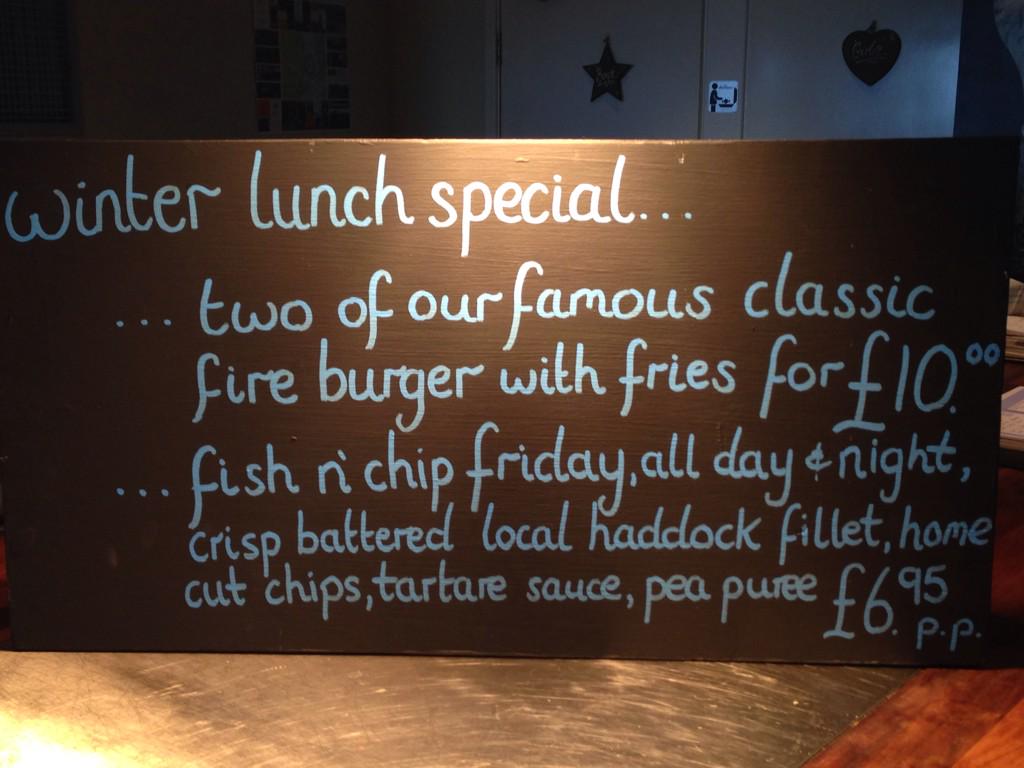 winter lunch special...
... two of our famous classic
fire burger with fries for £10.00
... fish n' chip friday, all day & night,
crisp battered local haddock fillet, home
cut chips, tartare sauce, pea puree £6.95
p.p.